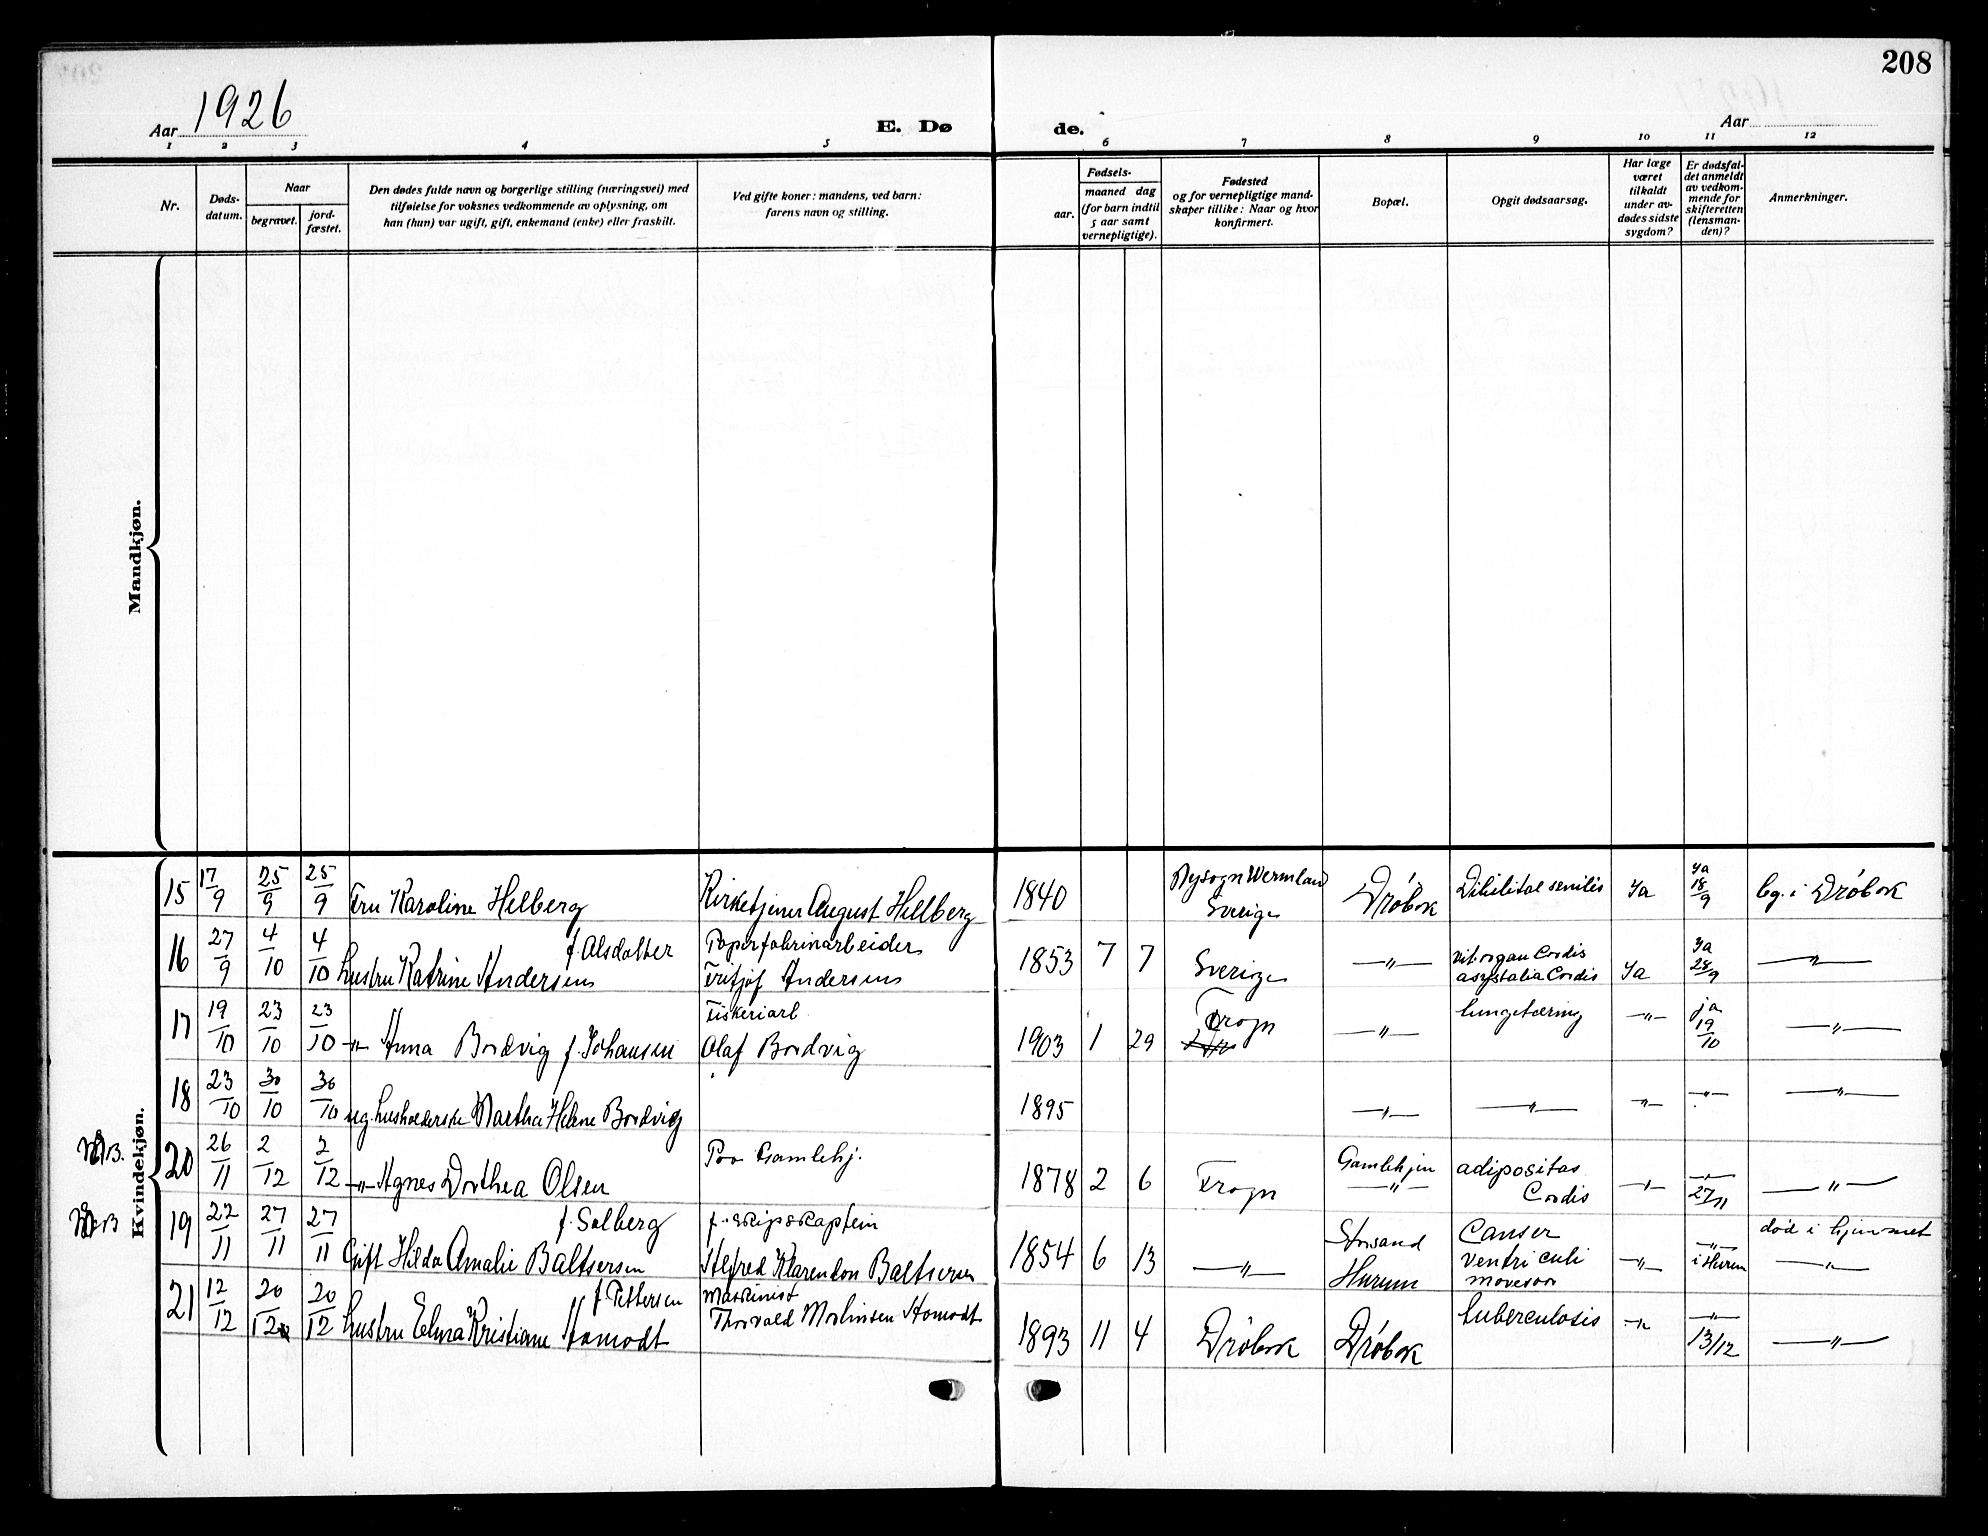 208
Aar 1926
E. Dø
de.
Aar
1 2 3 4 5 6 7 8 9 10 11 12
Nr.
Døds-
datum.
Naar
begravet.
jord-
fæstet.
Den dødes fulde navn og borgerlige stilling (næringsvei) med
tilføielse for voksnes vedkommende av oplysning, om
han (hun) var ugift, gift, enkemand (enke) eller fraskilt.
Ved gifte koner: mandens, ved barn:
farens navn og stilling.
Fødsels-
aar.
maaned dag
(for barn indtil
5 aar samt
vernepligtige).
Fødested
og for vernepligtige mand-
skaper tillike: Naar og hvor
konfirmert.
Bopæl.
Opgit dødsaarsag.
Har læge
været
tilkaldt
under av-
dødes sidste
sygdom?
Er dødsfal-
det anmeldt
av vedkom-
mende for
skifteretten
(lensman-
den)?
Anmerkninger.
Mandkjøn.
Kvindekjøn.
15 17/9 25/9 25/9 Fru Karoline Helberg
Kirketjener August Hellberg
1840
Wermland
Sverige
Drøbak
senilis
Ja
Ja 18/9
bg. i Drøbak
16 27/9 4/10 4/10
f. Olsdatter
Hustru Katrine Andersen
Papirfabrikarbeider
Fritjof Andersen
1853 7 7
Sverige
—"—
vit. organ Cordis
asystolia Cordis
Ja
Ja 28/9
—"—
17 19/10 23/10 23/10 —"— Anna Bordvig f. Johansen
Fiskeriarb
Olaf Bordvig
1903 1 29
Frogn
—"—
lungetæring
—"—
ja 19/10
—"—
18 23/10 30/10 30/10 ug. husholderske Martha Helene Bordvig
1895
—"— —"— —"— —"— —"—
NB.
20 26/11 2/12 2/12 —"— Agnes Dorthea Olsen
Paa Gamlehj.
1878 2 6
Frogn
Gamlehjem
—"—
adipositas
Cordis
—"—
—"— 27/11
—"—
NB
19 22/11 27/11 27/11
f. Solberg
Gift Hilda Amalie Baltsersen
f. skipskaptein
Alfred Klarendon Baltsersen
1854 6 13
—"—
Storsand
Hurum
Canser
ventriculi
—"—
—"— i Hurum
død i hjemmet
—"—
21 12/12 20/12 20/12
f. Pettersen
Hustru Elma Kristiane Homodt
Maskinist
Thorvald Martinsen Homodt
1893 11 4
Drøbak
Drøbak
tuberculosis
—"—
—"— 13/12
—"—